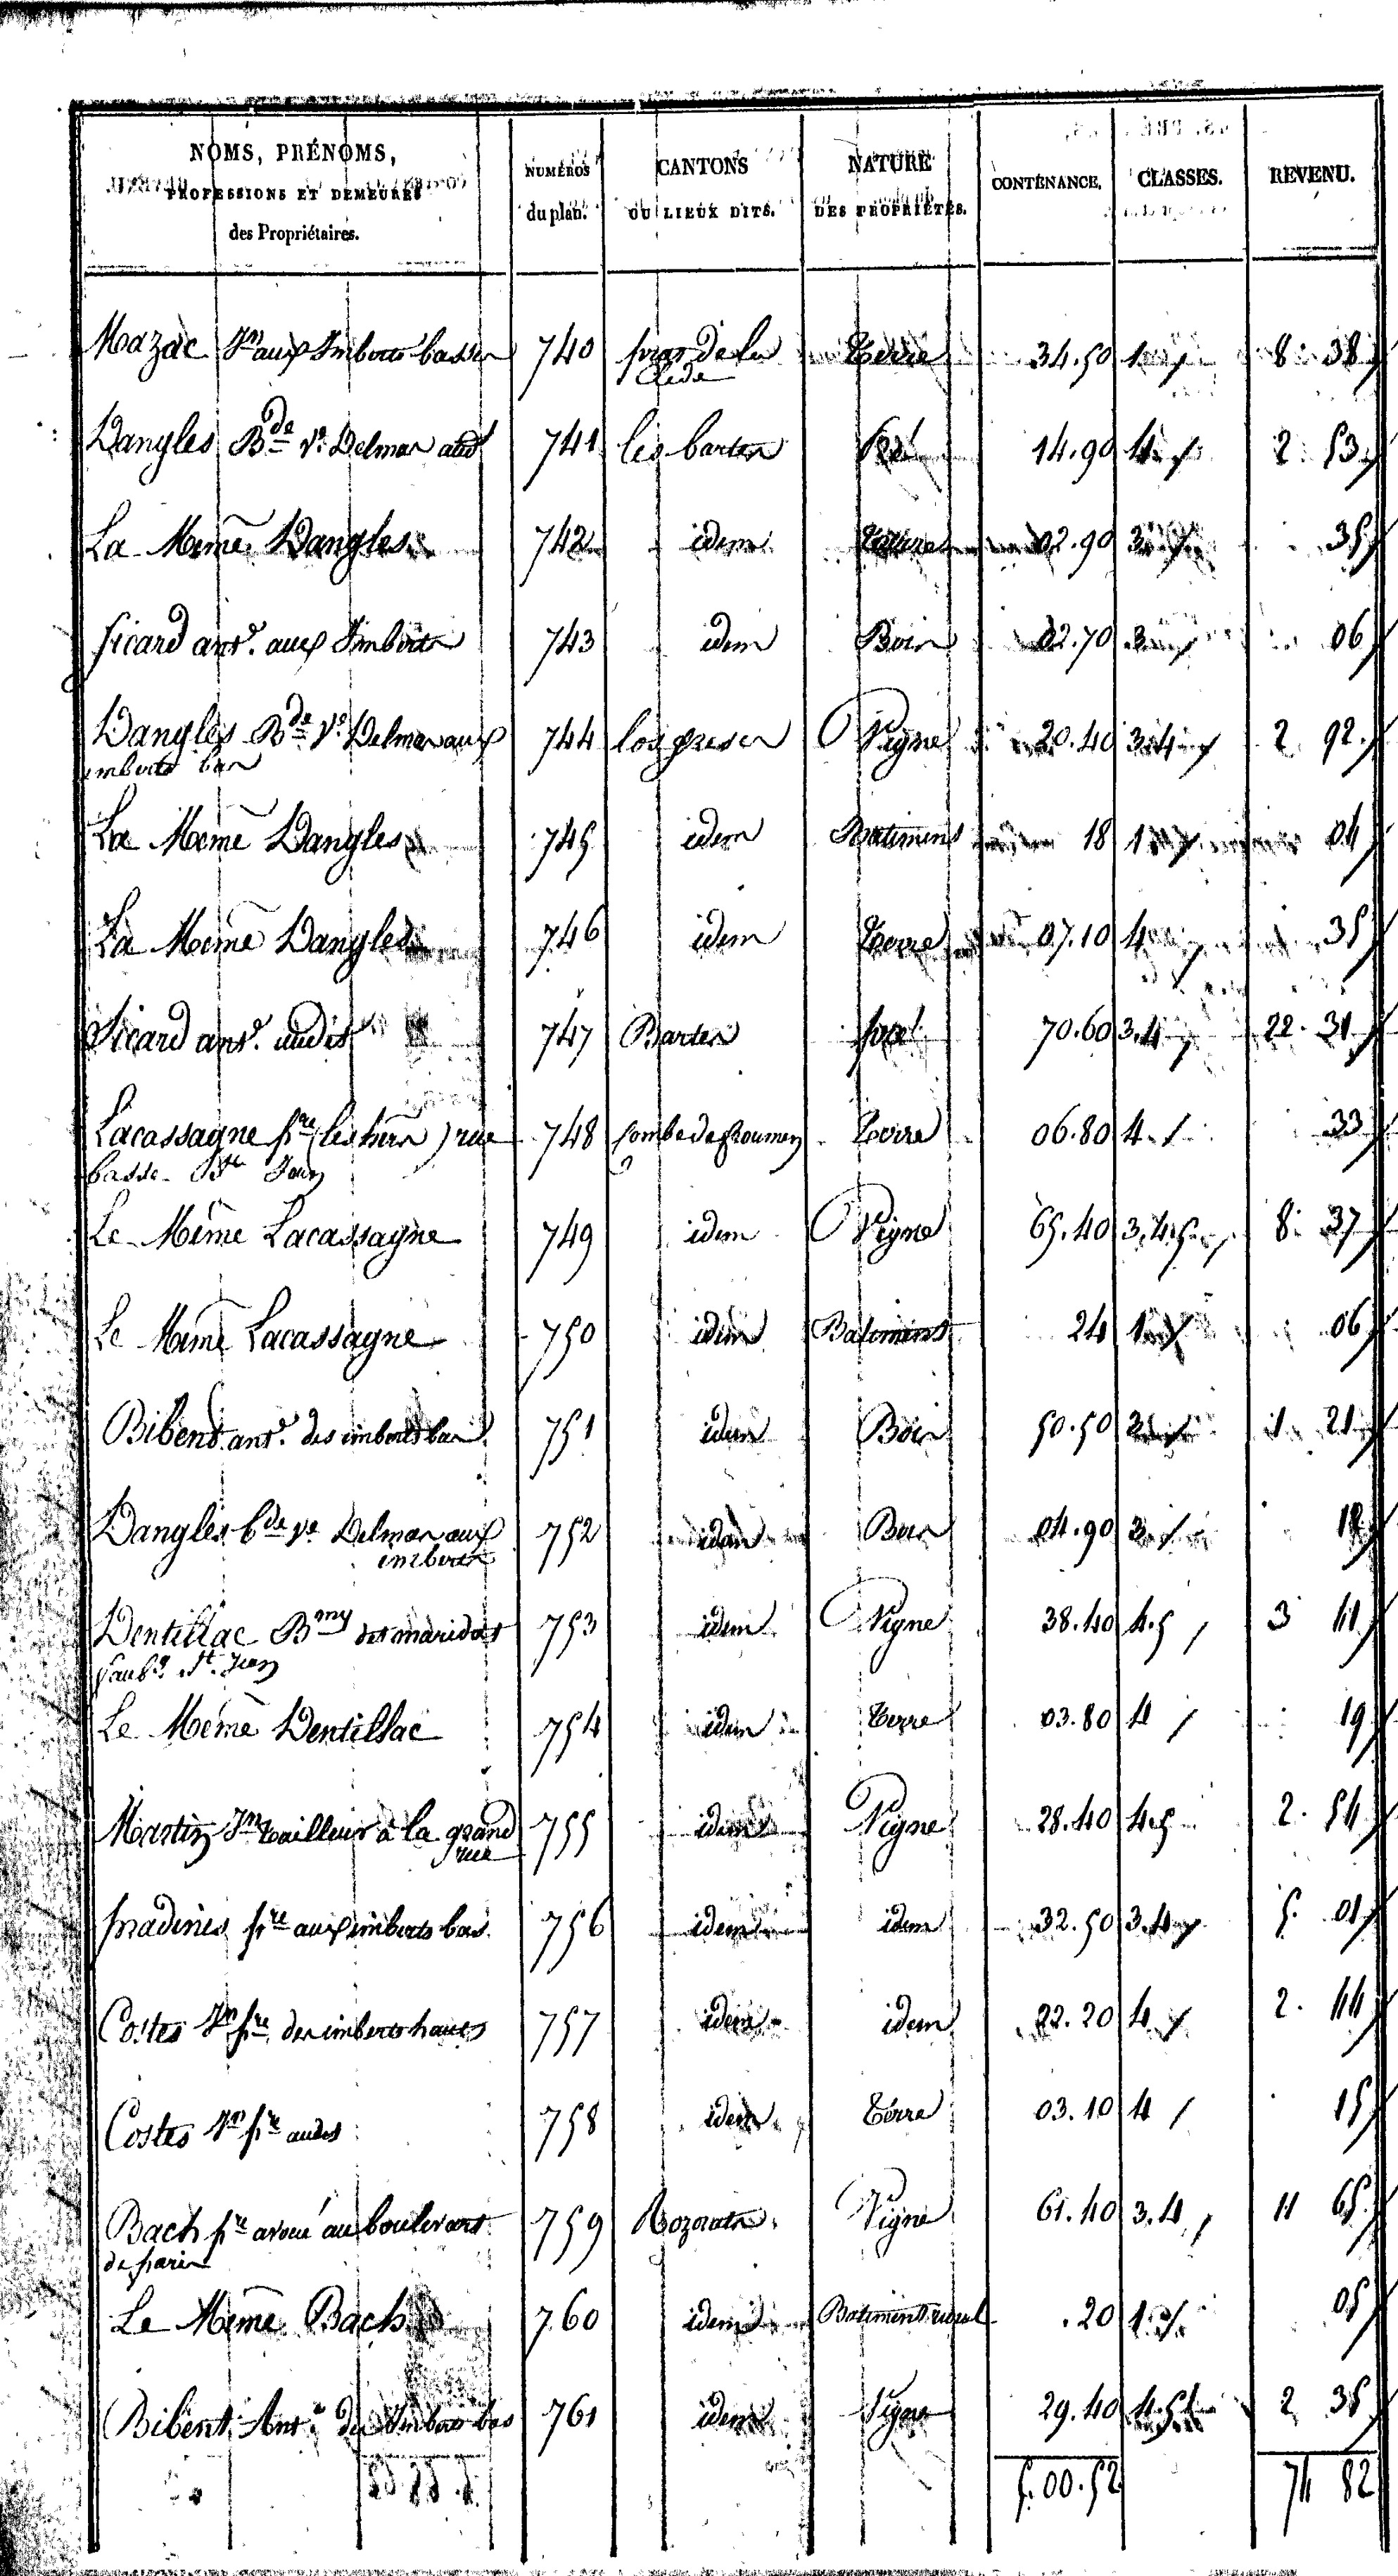 NOMS, PRÉNOMS,
PROFESSIONS ET DEMEURES
des Propriétaires.
NUMÉROS
du plan.
CANTONS
OU LIEUX DITS.
NATURE
DES PROPRIÉTÉS.
CONTENANCE.
CLASSES.
REVENU.
Mazac Jn aux Imberts basses 740 pras de la Terre 34.50 1 8. 38
Clede
Dangles Bde Ve Delmas aud 741 les bartes Pré 14.90 4 2. 53
La Même Dangles 742 idem 02.90 3 35
Sicard ant. aux Imberts 743 idem Bois 02.70 3 06
Dangles Bde Ve Delmas aux 744 los preses Vigne 20.40 3.4 2. 92
imberts bas
La Même Dangles 745 idem Batiment 18 1 04
La Même Dangles 746 idem Terre 07.10 4 35
Sicard ant. audit 747 Bartes pré 70.60 3.4 22. 31
Lacassagne pre (les hers) rue 748 Combe de Terre 06.80 4 33
basse St Jean
Le Même Lacassagne 749 idem Vigne 65.40 3.4.5 8. 37
Le Même Lacassagne 750 idem Batiment 24 1 06
Bibent ant. des imberts bas 751 idem Bois 50.50 3 1 21
Dangles bde ve Delmas aux 752 idem Bois 04.90 3 12
imberts
Dentillac Bmy des maridats 753 idem Vigne 38.40 4.5 3 41
faubg St Jean
Le Même Dentillac 754 idem Terre 03.80 4 19
Martin Jn tailleur à la grand 755 idem Vigne 28.40 4.5 2. 54
rue
pradines pre aux imberts bas 756 idem idem 32.50 3.4 5. 01
Costes Jn pre des imberts hauts 757 idem idem 22.20 4 2. 44
Costes Jn pre audit 758 idem Terre 03.10 4 15
Bach pre avoué au boulevart 759 Vigne 61.40 3.4 11 65
de paris
Le Même Bach 760 idem Batiment rural .20 1 05
Bibent Ant. des Imberts bas 761 idem Vigne 29.40 4.5 2 35
5.00.52 74 82